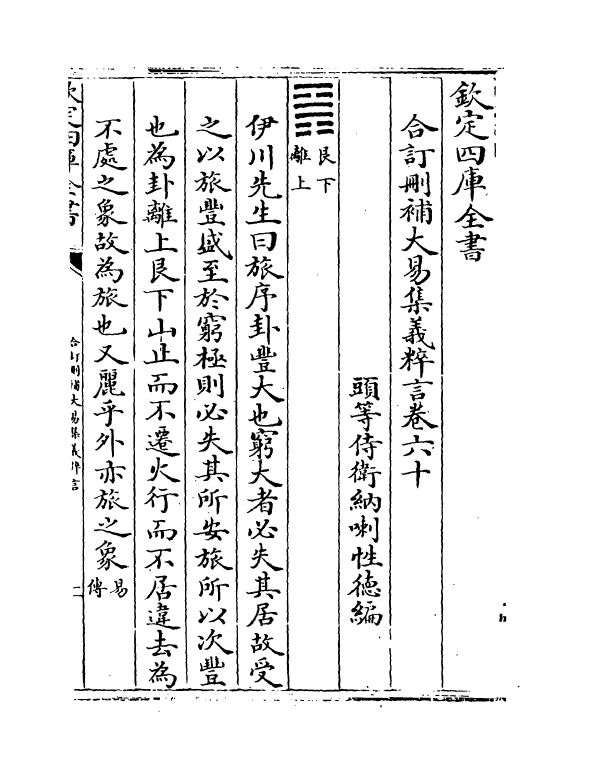 欽定四庫全書
合訂刪補大易集義粹言卷六十
頭等侍衛納喇性徳編
艮下
離上
伊川先生曰旅序卦豐大也窮大者必失其居故受
之以旅豐盛至於窮極則必失其所安旅所以次豐
也為卦離上艮下山止而不遷火行而不居違去為
不處之象故為旅也又麗乎外亦旅之象易傳
欽定四庫全書
合訂刪補大易集義粹言